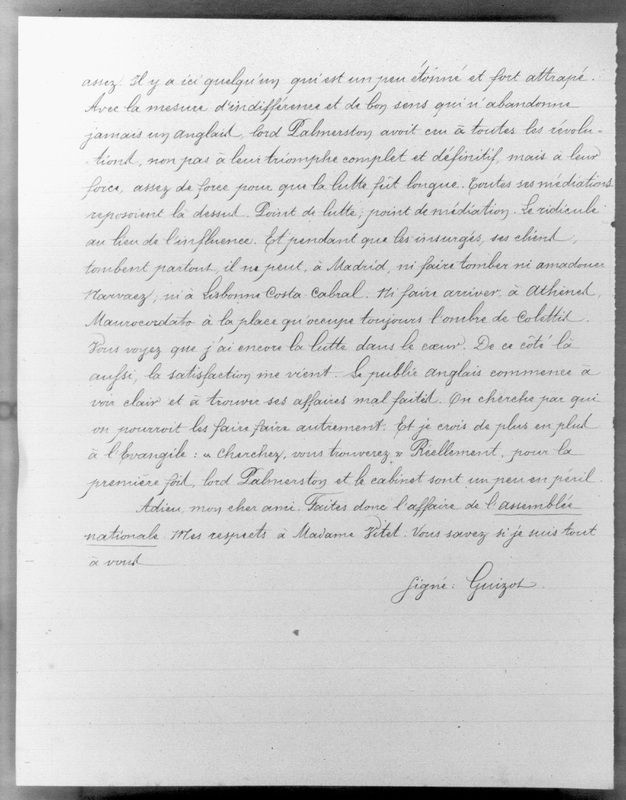 assez. Il y a ici quelqu'un qui est un peu étonné et fort attrapé.
Avec la mesure d'indifférence et de bon sens qui n'abandonne
jamais un anglais, lord Palmerston avoit cru à toutes les révolu-
tions, non pas à leur triomphe complet et définitif, mais à leur
force, assez de force pour que la lutte fût longue. Toutes ses médiations
reposoient là dessus. Point de lutte, point de médiation. Le ridicule
au lieu de l'influence. Et pendant que les insurgés, ses clients,
tombent partout, il ne peut, à Madrid, ni faire tomber ni amadouer
Narvaez, ni à Lisbonne Costa-Cabral. Ni faire arriver, à Athènes,
Maurocordato à la place qu'occupe toujours l'ombre de Colettis.
Vous voyez que j'ai encore la lutte dans le cœur. De ce côté là
aussi, la satisfaction me vient. Le public anglais commence à
voir clair et à trouver ses affaires mal faites. On cherche par qui
on pourroit les faire faire autrement. Et je crois de plus en plus
à l'Evangile : « cherchez, vous trouverez » Réellement, pour la
première fois, lord Palmerston et le cabinet sont un peu en péril.
Adieu, mon cher ami. Faites donc l'affaire de l'assemblée
nationale. Mes respects à Madame Vitet. Vous savez si je suis tout
à vous
Signé : Guizot.